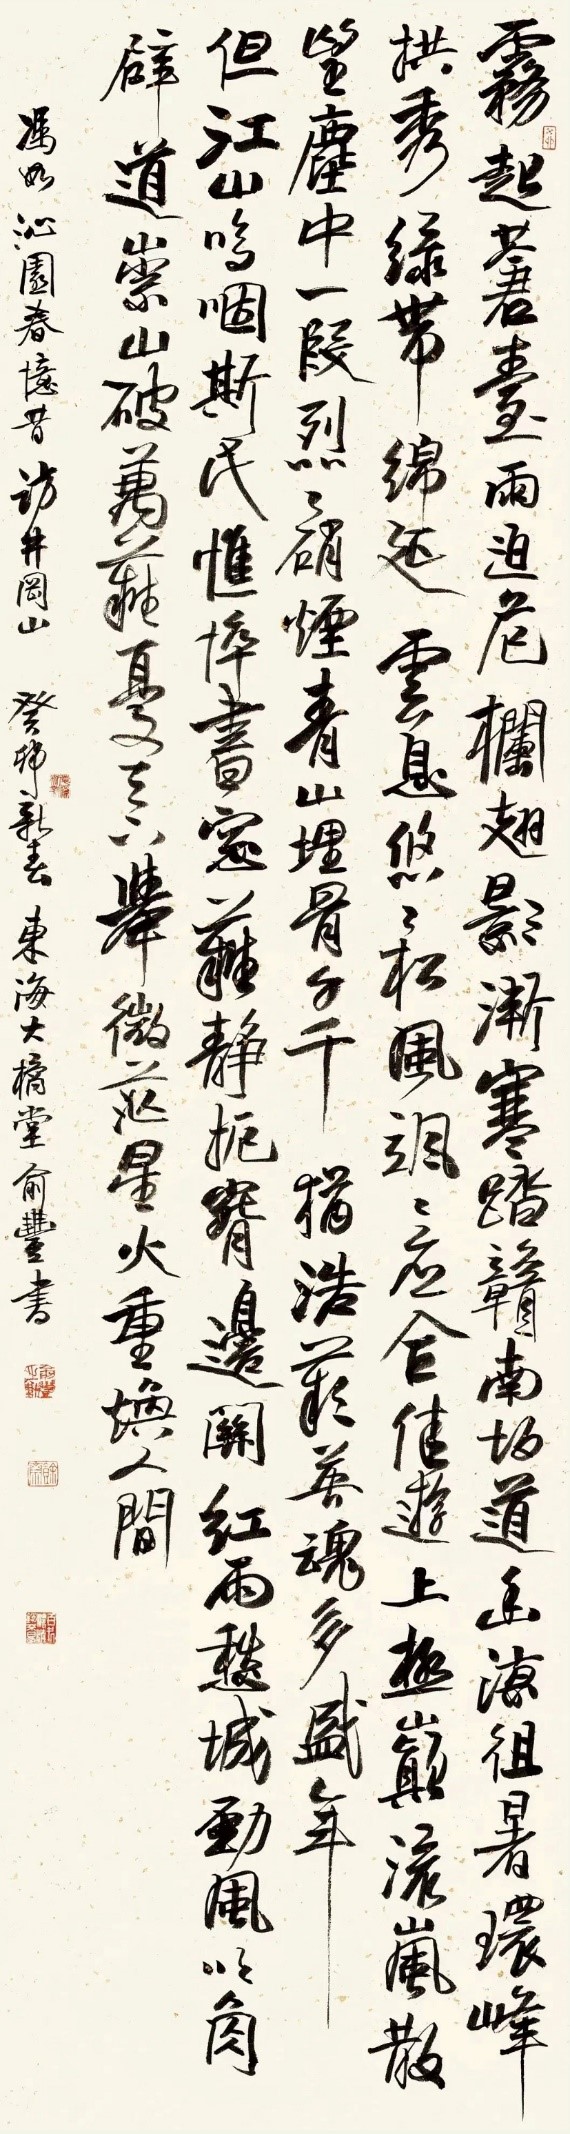 霧起蒼臺雨迫危欄翅影漸寒踏贛南坊道幺海徂暑環峰
拱秀綠帶綿延雲息悠〻松風颯〻應合佳遊上極巔流嵐散
望塵中一段烈〻硝煙青山埋骨千千猶浩歎英魂多盛年
但江山嗚咽斯民憔悴書窗難靜扼腎邊關紅雨鼙城勁風吹角
辟道崇山破萬難憂天下舉微茫星火重煥人間
馮如沁園春憶昔訪井岡山癸卯新春東海大橘堂俞豐書